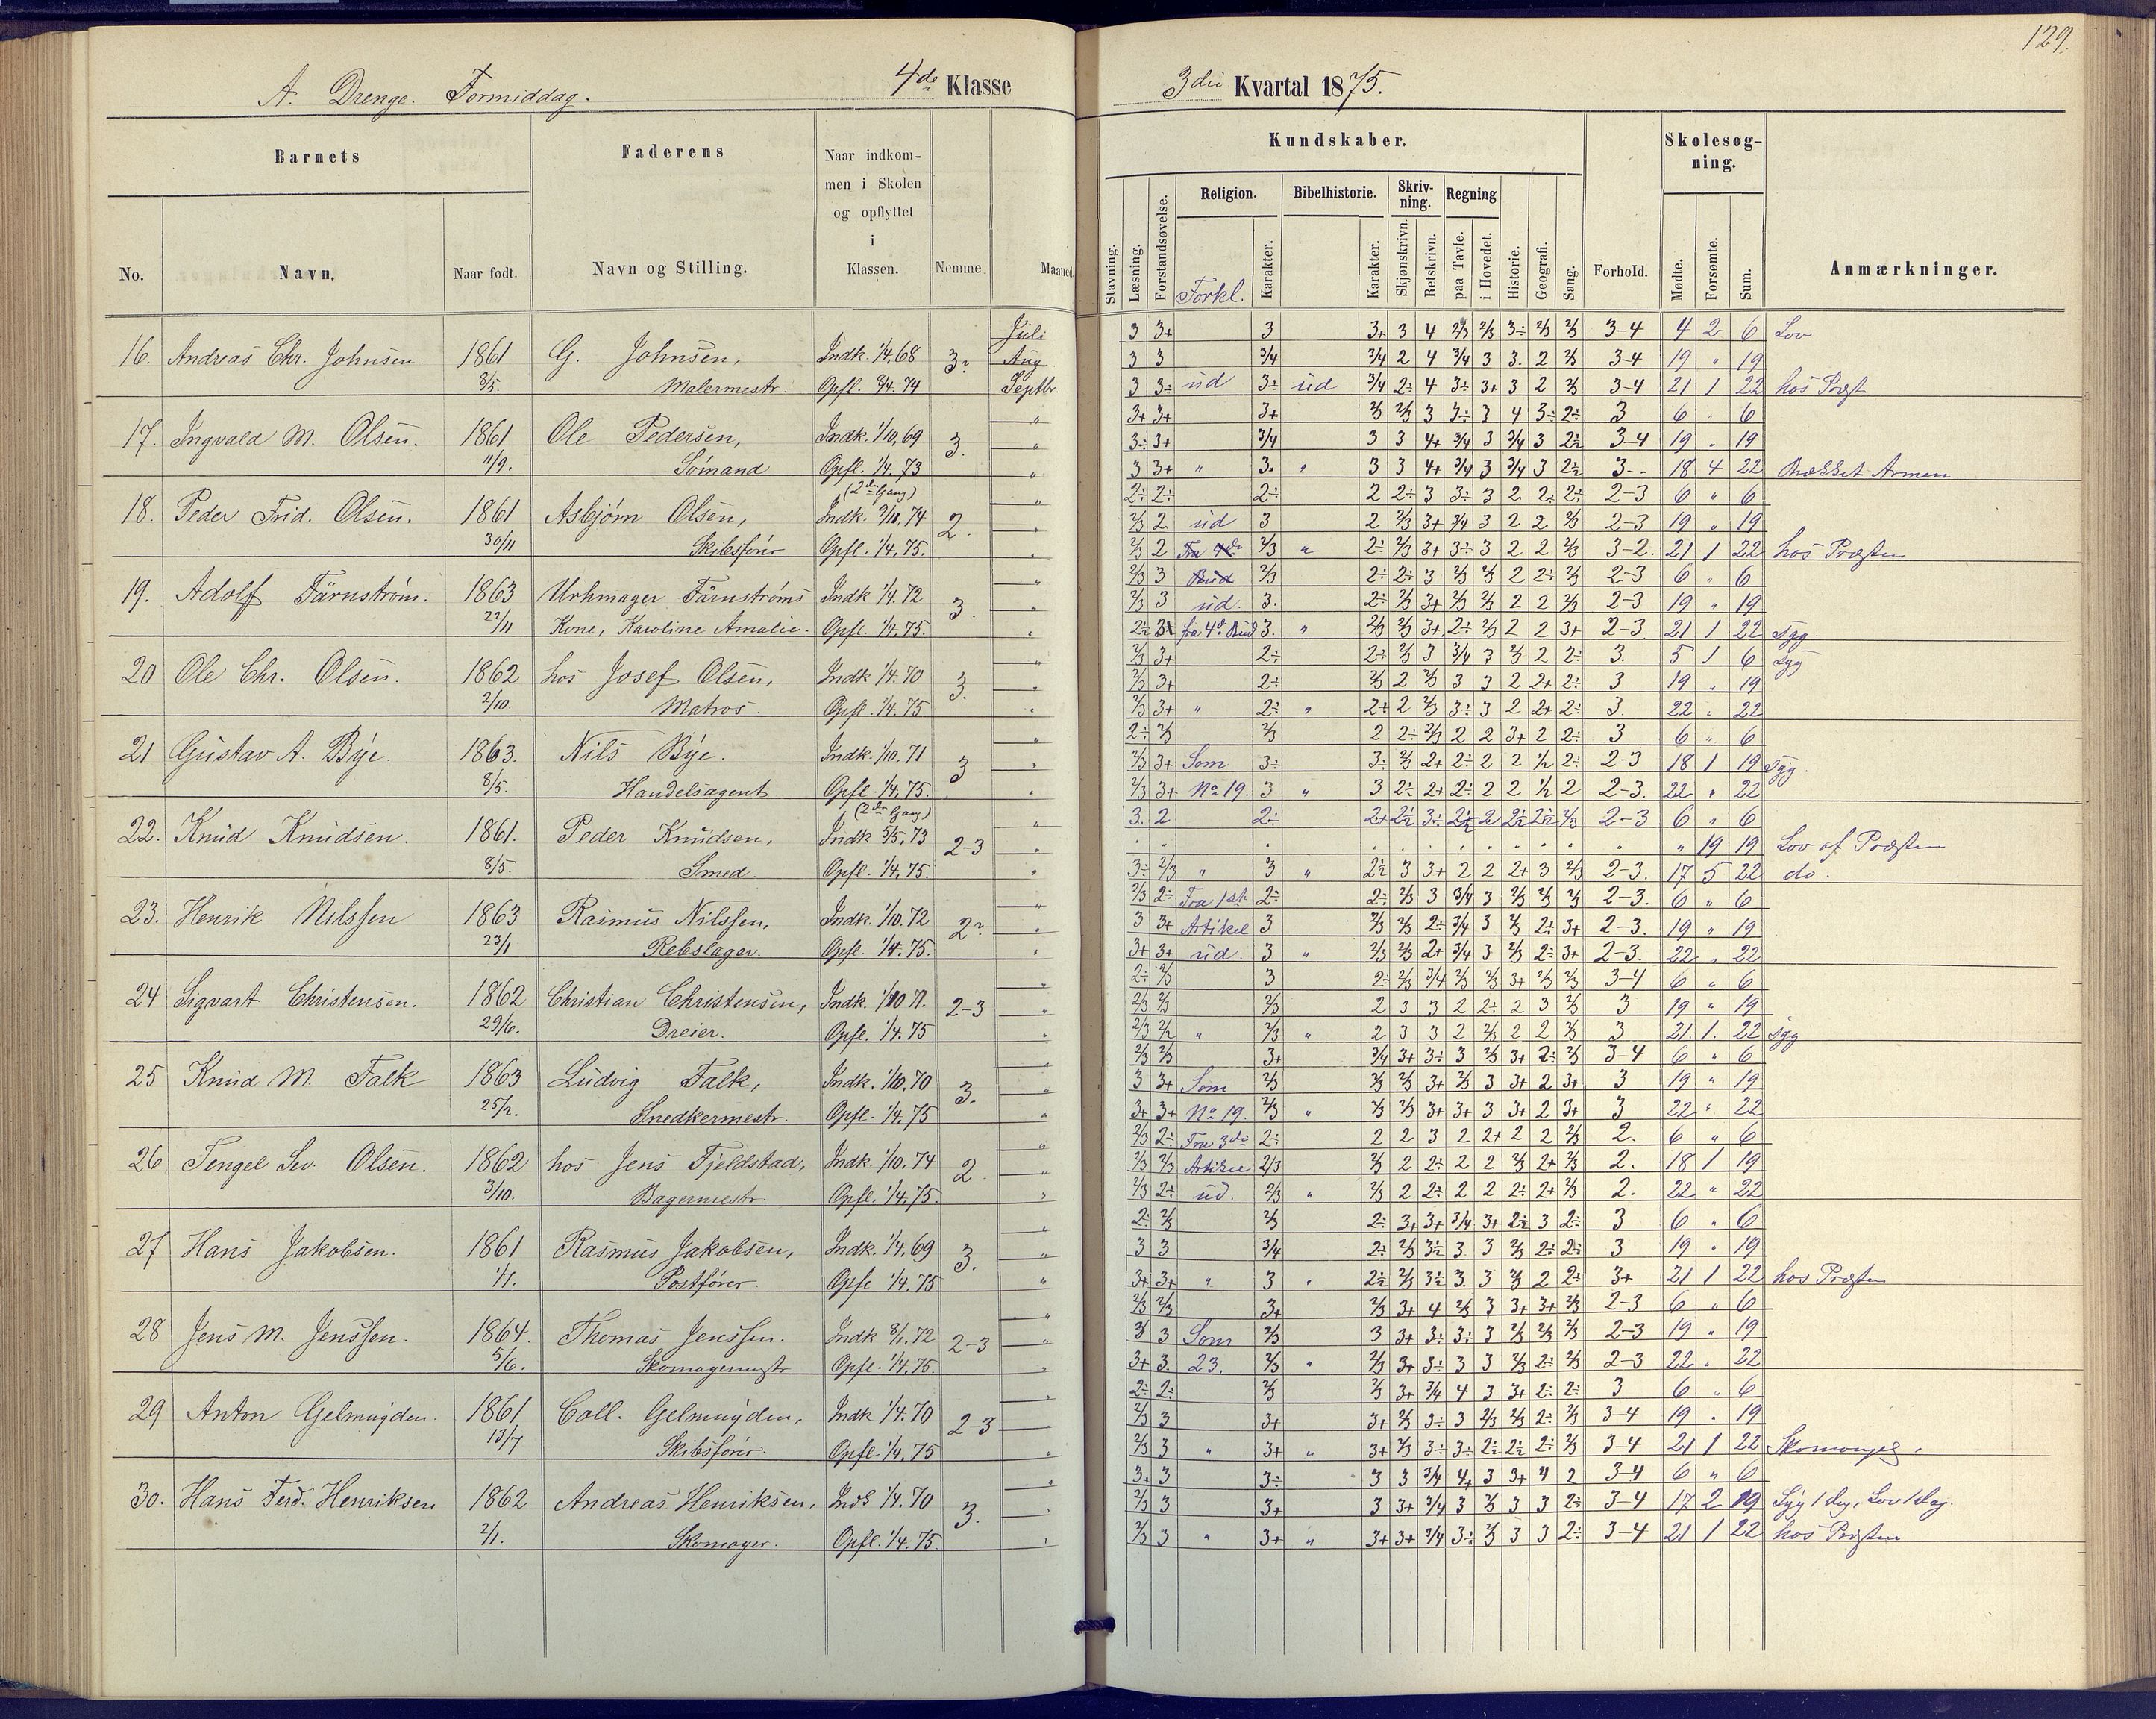 129.
A. Drenge. Formiddag. 4de Klasse
3die Kvartal 1875.
Barnets
Faderens
Naar indkom-
men i Skolen
og opflyttet
i
Klassen.
No.
Navn.
Naar født.
Navn og Stilling.
Nemme
Maaned
Kundskaber.
Skolesøg-
ning.
Religion.
Bibelhistorie.
Skriv-
ning.
Regning
Stavning.
Læsning.
Forstandsøvelse.
Forkl.
Karakter.
Karakter.
Skjønskrivn.
Retskrivn.
paa Tavle.
i Hovedet.
Historie.
Geografi.
Sang.
Forhold.
Mødte.
Forsømte.
Sum.
Anmærkninger.
Juli
16. Andreas Chr. Johnsen. 1861 G. Johnsen, Indk. 1/4.68 Aug
8/5. Malermestr. Septbr.
17. Ingvald M. Olsen. 1861 Ole Pedersen, Indk. 1/10.69 3.
11/9. Sømand Opfl. 1/4.73
(2den Gang)
18. Peder Frid. Olsen. 1861 Asbjørn Olsen, 2.
30/11 Skibsfører Opfl. 1/4.75.
19. Adolf Färnstrøm. 1863 Urhmager Färnstrøms Indk 1/4.72 3.
22/11 Kone, Karoline Amalie. Opfl. 1/4.75.
20 Ole Chr. Olsen. 1862 hos Josef Olsen, Indk 1/4.70 3.
2/10. Matros. Opfl. 1/4.75
21 Gustav A. Bye. 1863. Nils Bye. Indk. 1/10.71 3
8/5. Handelsagent Opfl. 1/4.75.
(2den Gang)
22. Knud Knudsen. 1861. Peder Knudsen, 2-3
8/5. Smed. Opfl. 1/4.75.
23. Henrik Nilssen 1863 Rasmus Nilssen, Indk. 1/10.72
23/1 Rebslager. Opfl. 1/4.75.
24 Sigvart Christensen. 1862 Christian Christensen, 2-3
29/6. Dreier. Opfl. 1/4.75
25 Knud M. Falk 1863 Ludvig Falk, Indk. 1/10.70 3.
25/2. Snedkermestr. Opfl. 1/4.75
26 Tengel Sev. Olsen. 1862 hos Jens Fjeldstad, Indk. 1/10.74 2.
3/10. Bagermestr. Opfl. 1/4.75.
27 Hans Jakobsen. 1861 Rasmus Jakobsen, Indk. 1/4.69 3.
Postfører. Opfl 1/4.75
28 Jens M. Jenssen. 1864. Thomas Jenssen. Indk 8/1.72 2-3
5/6. Skomagermestr Opfl. 1/4.75.
29 Anton Gelmuyden. 1861 Coll. Gelmuyden, Indk 1/4.70 2-3
13/7 Skibsfører. Opfl. 1/4.75
30. Hans Ferd. Henriksen 1862 Andreas Henriksen, Indk 1/4.70 3.
2/1. Skomager. Opfl. 1/4.75.
3 3+ 3 3+ 3 4 2/3 2/3 3÷ 2/3 2/3 3-4 4 2 6 Lov
3 3 3/4 3/4 2 4 3/4 3 3. 2 2/3 3-4 19 " 19
3 3÷ ud 3÷ ud 3/4 2÷ 4 3÷ 3+ 3 2 2/3 3-4 21 1 22 hos Præst
3+ 3+ 3+ 2/3 2/3 3 3÷ 3 4 3÷ 2÷ 3 6 " 6
3÷ 3+ 3/4 3 3 4+ 3/4 3 3/4 3 3-4 19 " 19
3 3+ " 3. " 3 3 4+ 3/4 3 3/4 3 18 4 22 Armen
2÷ 2÷ 2÷ 2 2÷ 3 3÷ 3 2 2÷ 2÷ 2-3 6 " 6
2/3 2 ud 3 2 2/3 3+ 3/4 3 2 2 2/3 2-3 19 " 19
2/3 2 2/3 " 2÷ 2/3 3+ 3÷ 3 2 2 2/3 3-2. 21 1 22 hos Præsten
2/3 3 2/3 2÷ 2÷ 3 2/3 2/3 2 2÷ 2/3 2-3 6 " 6
2/3 3 ud. 3. 2÷ 2/3 3+ 2/3 2/3 2 2 2/3 2-3 19 " 19
fra 4de Bud 3. " 2/3 2/3 3+ 2÷ 2/3 2 2 3+ 2-3 21 1 22 Syg.
2/3 3+ 2÷ 2÷ 2/3 3 3/4 3 2/3 2 2÷ 3. 5 1 6 Syg
2/3 3+ 2÷ 2/3 2 2/3 3 3 2 2+ 2÷ 3 19 " 19
2/3 3+ " 2÷ " 2+ 2 2/3 3÷ 3 2 2+ 2÷ 3. 22 " 22
2÷ 2/3 2/3 2 2÷ 2/3 2 2 3+ 2 2÷ 3 6 " 6
2/3 3+ Som 3÷ 3÷ 2/3 2+ 2÷ 2 2 1/2 2÷ 2-3 18 1 19 Syg.
2/3 3+ No 19. 3 " 3 2÷ 2+ 2÷ 2 2 1/2 2 2-3. 22 " 22
3. 2 2÷ 2-3 6 " 6
" 19 19 Lov af Præsten
3÷ 2/3 " 3 " 3 3+ 2 2 2+ 3 2/3 2-3. 17 5 22 do.
2/3 2÷ Fra 1ste 2÷ 2÷ 2/3 3 3/4 3 2/3 2/3 2/3 2-3. 6 " 6
3 3+ Artikel 3 2/3 2/3 2÷ 3/4 3 2/3 2÷ 3+ 2-3. 19 " 19
3+ 3+ ud. 3 " 2/3 2/3 2+ 3/4 3 2/3 2÷ 3+ 2-3. 22 " 22
2÷ 2/3 3 2÷ 2/3 3/4 2/3 2/3 3+ 2/3 2/3 3-4 6 " 6
2/3 2/3 2/3 2 3 3 2 2÷ 2 3 2/3 3 19 " 19
" 2/3 " 2 3 3 2 2/3 2 2 2/3 3 21. 1. 22 Syg
2/3 2/3 3+ 3/4 3+ 3÷ 3 2/3 3+ 2÷ 2/3 3-4 6 " 6
3 3+ Som 2/3 2/3 2/3 3+ 2/3 3 3+ 2 3+ 3 19 " 19
3+ 3+ No 19. 2/3 " 2/3 2/3 3+ 3+ 3 3+ 2 3+ 3 22 " 22
2/3 2÷ Fra 3die 2÷ 2 2 3 2 2+ 2 2 2/3 2. 6 " 6
2/3 2/3 Artikel 2/3 2/3 2 2÷ 2 2 2/3 2+ 2/3 2. 18 1 19
2/3 2÷ ud. 2/3 " 2/3 2 2÷ 2 2 2÷ 2+ 2/3 2. 22 " 22
2÷ 2/3 2/3 2÷ 3+ 3+ 3/4 3+ 3 2÷ 3 6 " 6
3 3 3/4 2÷ 2/3 3 3 2/3 2÷ 2÷ 3 19 " 19
3+ 3+ " 3 " 2/3 3. 3 2/3 2 2÷ 3+ 21 1 22 hos Præsten
2/3 2/3 3+ 2/3 3+ 4 2/3 3 3+ 3+ 2/3 2-3 6 " 6
3 3 Som 2/3 3 3+ 3÷ 3÷ 3 2/3 2/3 2/3 2-3 19 " 19
3+ 3. 23. 2/3 " 2/3 3+ 3÷ 3 3 2/3 2÷ 2/3 2-3 22 " 22
2÷ 2÷ 2/3 2/3 3+ 3/4 4 3 3+ 2÷ 2÷ 3 6 " 6
2/3 3 3+ 3+ 2/3 3÷ 3 2/3 2/3 2÷ 2/3 3-4 19 " 19
2/3 3 " 3+ " 3+ 2/3 3÷ 3÷ 2÷ 2/3 3-4 21 1 22
3+ 3 3÷ 3 3 3/4 4+ 3 3+ 4 2 3-4 6 " 6
2/3 3 3+ 3 3+ 3/4 3 2/3 3 3 2÷ 3-4 17 2 19 Syg 1 Dag, Lov 1 Dag.
2/3 3 " 3+ " 3+ 3+ 3/4 3÷ 2/3 3 3 2÷ 3-4 21 1 22 hos Præsten